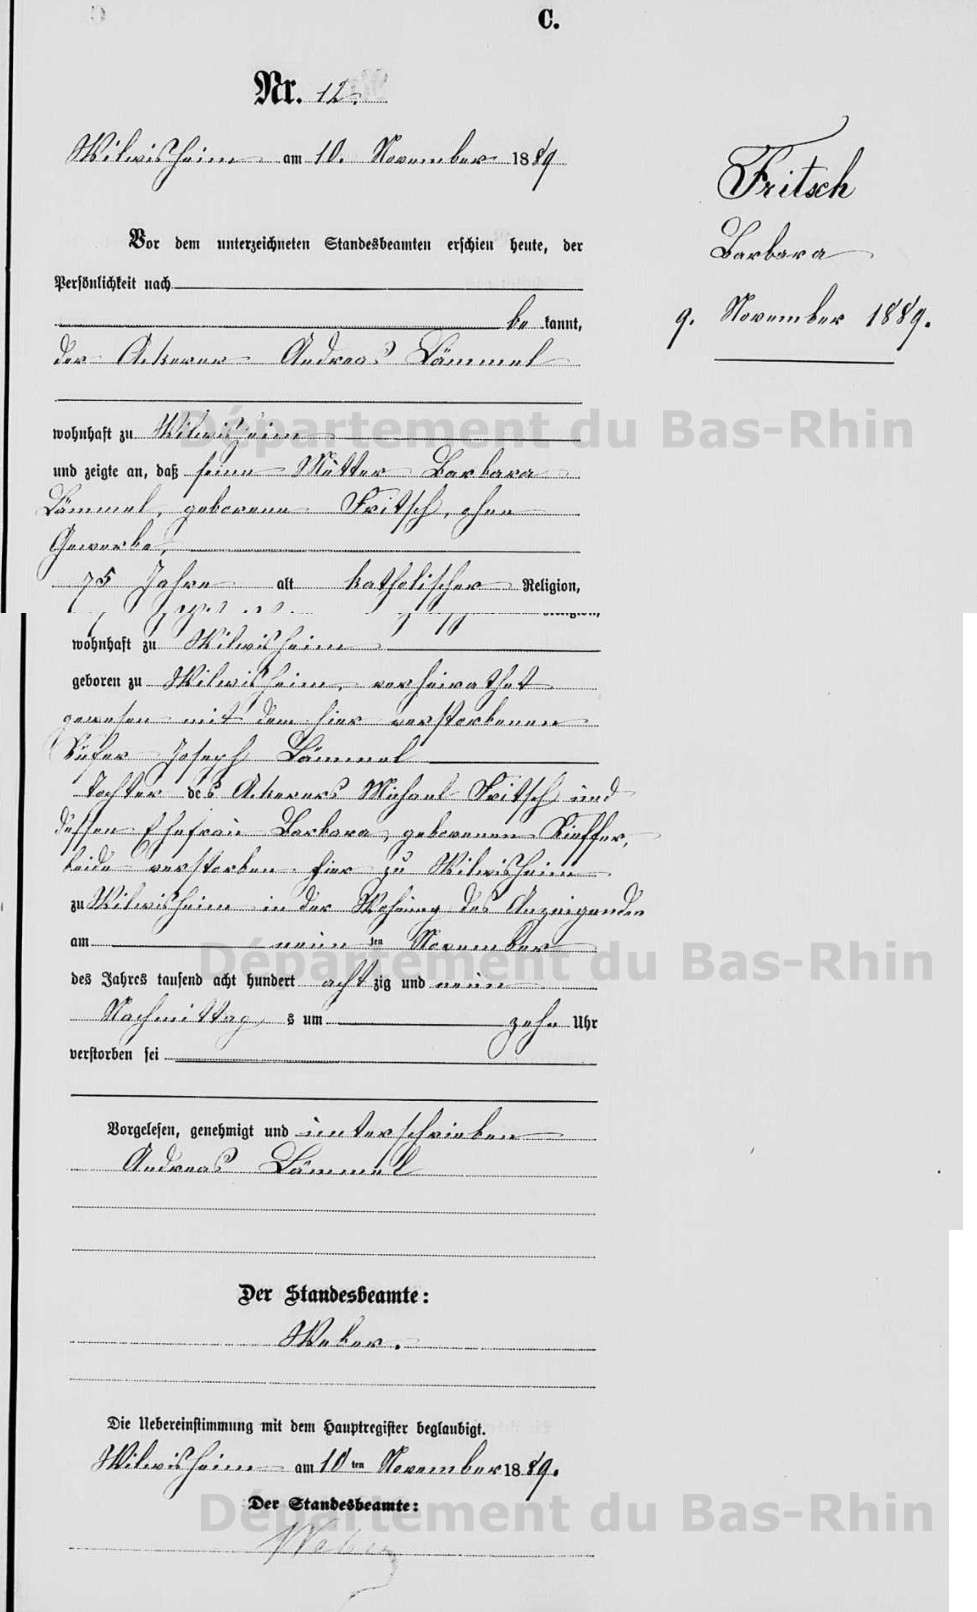 C.
Nr. 12.
Wilwisheim am 10. November 1889
Fritsch
Barbara
9. November 1889.
Vor dem unterzeichneten Standesbeamten erschien heute, der
Persönlichkeit nach
be kannt,
der Ackerer Andreas Lämmel
wohnhaft zu Wilwisheim
und zeigte an, daß seine Mutter Barbara
Lämmel, geborene Fritsch, ohne
Gewerbe,
75 Jahre alt katholischer Religion,
wohnhaft zu Wilwisheim
geboren zu Wilwisheim, verheirathet
gewesen mit dem hier verstorbenen
Küfer Joseph Lämmel
Tochter des Ackerers Michael Fritsch und
dessen Ehefrau Barbara, geborenen Kieffer,
beide verstorben hier zu Wilwisheim
zu Wilwisheim in der Wohnung des Anzeigenden
am neun ten November
des Jahres tausend acht hundert acht zig und neun
Nachmittag s um zehn Uhr
verstorben sei
Vorgelesen, genehmigt und unterschrieben
Andreas Lämmel
Der Standesbeamte:
Weber.
Die Uebereinstimmung mit dem Hauptregister beglaubigt.
Wilwisheim am 10 ten November 1889.
Der Standesbeamte:
Weber
Département du Bas-Rhin
Département du Bas-Rhin
Département du Bas-Rhin